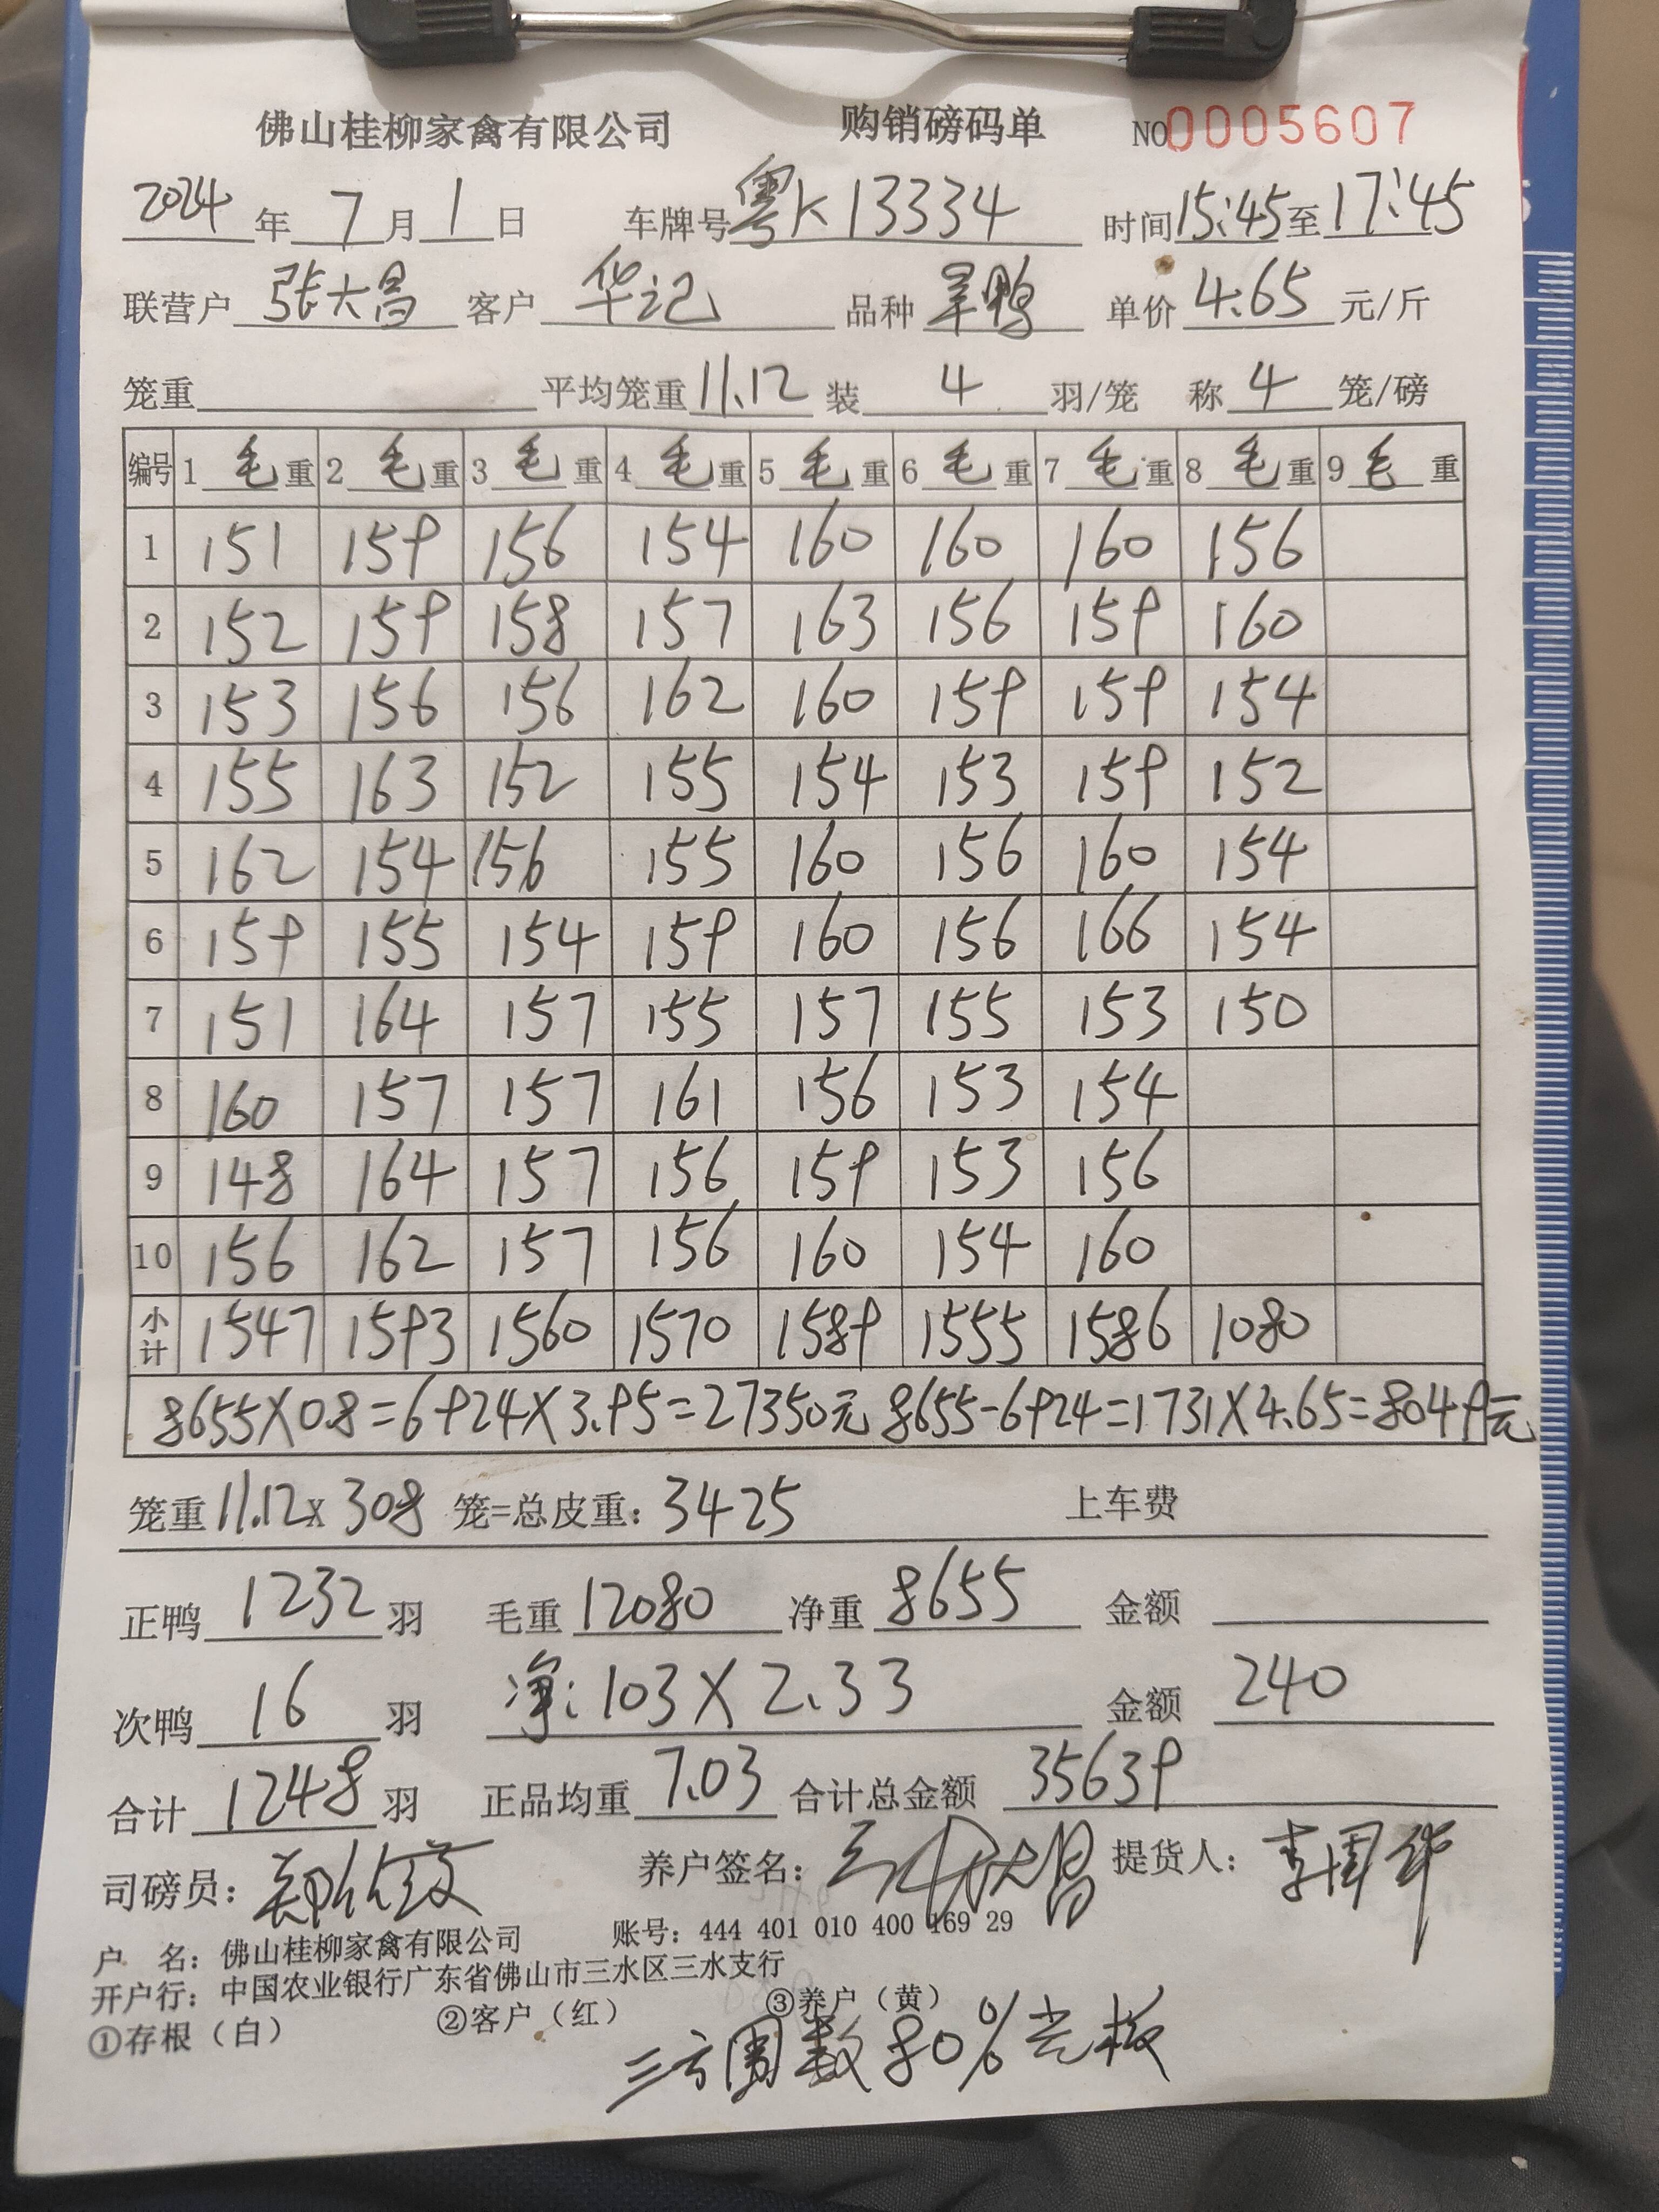 佛山桂柳家禽有限公司 购销磅码单 NO 0005607
2024 年 7 月 1 日 车牌号 粤K13334 时间 15:45 至 17:45
联营户 张大昌 客户 华记 品种 羊鸭 单价 4.65 元/斤
笼重 平均笼重 11.12 装 4 羽/笼 称 4 笼/磅
编号 1 毛 重 2 毛 重 3 毛 重 4 毛 重 5 毛 重 6 毛 重 7 毛 重 8 毛 重 9 毛 重
1 151 159 156 154 160 160 160 156
2 152 159 158 157 163 156 159 160
3 153 156 156 162 160 159 159 154
4 155 163 152 155 154 153 159 152
5 162 154 156 155 160 156 160 154
6 159 155 154 159 160 156 166 154
7 151 164 157 155 157 155 153 150
8 160 157 157 161 156 153 154
9 148 164 157 156 159 153 156
10 156 162 157 156 160 154 160
小计 1547 1593 1560 1570 1589 1555 1586 1080
8655X0.8=6924X3.95=27350元 8655-6924=1731X4.65=8049元
笼重 11.12x 308 笼=总皮重: 3425 上车费
正鸭 1232 羽 毛重 12080 净重 8655 金额
次鸭 16 羽 净: 103X2.33 金额 240
合计 1248 羽 正品均重 7.03 合计总金额 35639
司磅员: 养户签名: 提货人:
户 名: 佛山桂柳家禽有限公司 账号: 444 401 010 400 169 29
开户行: 中国农业银行广东省佛山市三水区三水支行
①存根(白) ②客户(红) ③养户(黄)
三方 数80%